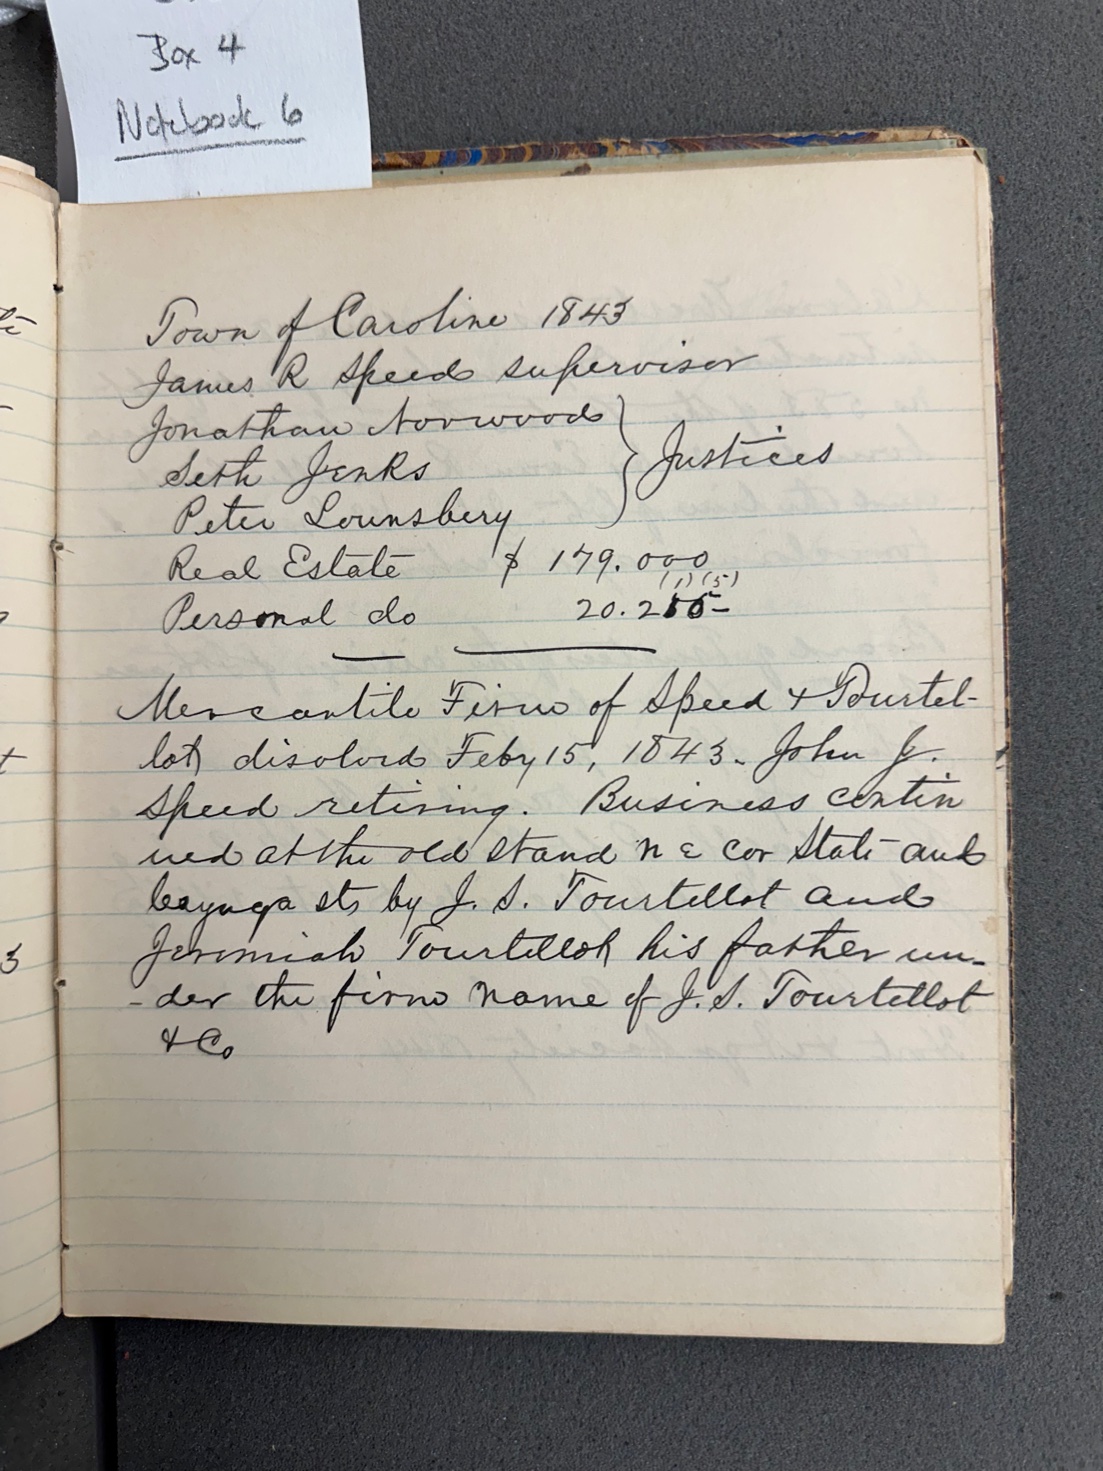 Box 4
Notebook 6
Town of Caroline 1843
James R Speed supervisor
Jonathan Norwood
Seth Jenks
Justices
Peter Lounsbery
Real Estate $ 179.000
(1) (5)
Personal do 20.255
Mercantile Firm of Speed & Tourtel-
lott disolved Feby 15, 1843. John J.
Speed retiring. Business contin
ued at the old stand N E cor State and
Cayuga sts by J. S. Tourtellot and
Jeremiah Tourtellott his father un-
-der the firm name of J. S. Tourtellot
& Co